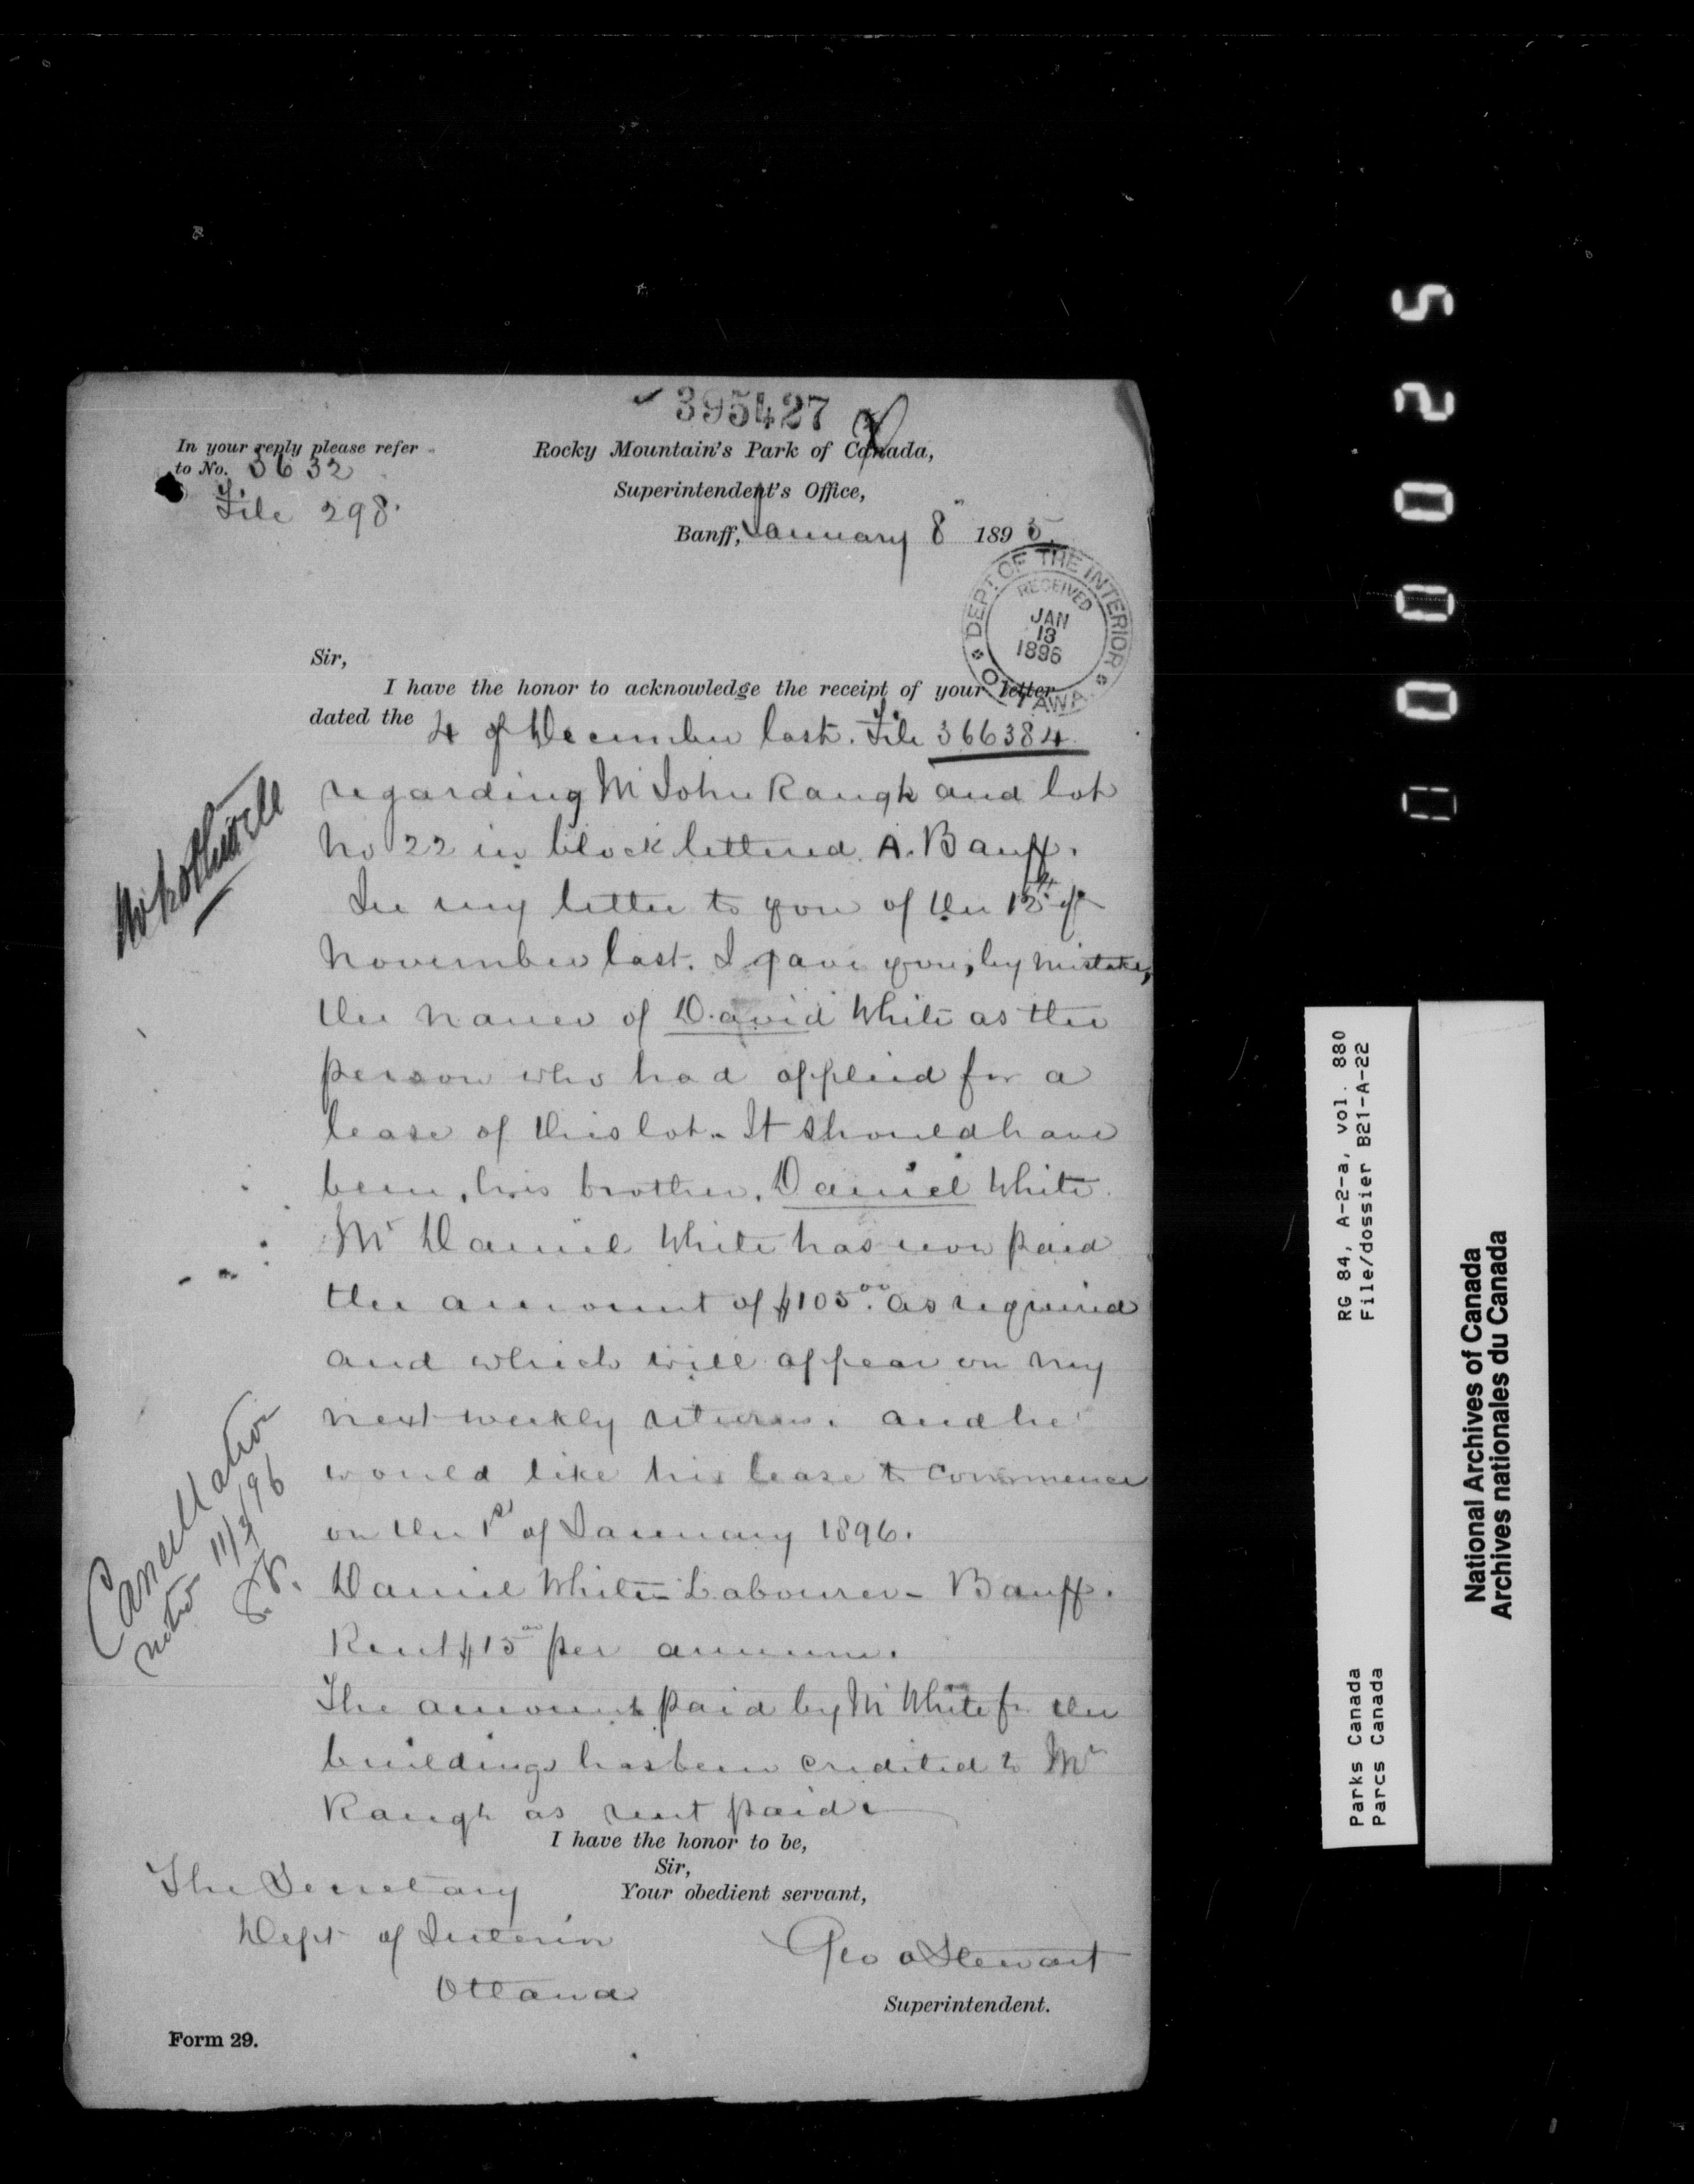 395427
In your reply please refer
to No. 3632
File 298.
Rocky Mountain's Park of Canada,
Superintendent's Office,
Banff, January 8 1895.
DEPT OF THE INTERIOR
RECEIVED
JAN
13
1896
OTTAWA
Sir,
I have the honor to acknowledge the receipt of your letter
dated the 4 of December last. File 366384
regarding Mr John Raugh and lot
No 22 in block lettered A. Banff.
In my letter to you of the 12th of
November last. I gave you, by mistake,
the name of David White as the
person who had applied for a
lease of this lot. It should have
been, his brother, Daniel White.
Mr Daniel White has now paid
the amount of $105.00 as required
and which will appear on my
next weekly return. and he
would like his lease to commence
on the 1st of January 1896.
Daniel White - Labourer - Banff.
Rent $15.00 per annum.
The amount paid by Mr White for the
buildings has been credited to Mr
Raugh as rent paid.
I have the honor to be,
Sir,
Your obedient servant,
Geo A Stewart
Superintendent.
The Secretary
Dept of Interior
Ottawa
Form 29.
Mr Rothwell
Cancellation
noted 11/3/96
RG 84, A-2-a, vol. 880
File/dossier B21-A-22
Parks Canada
Parcs Canada
National Archives of Canada
Archives nationales du Canada
000025